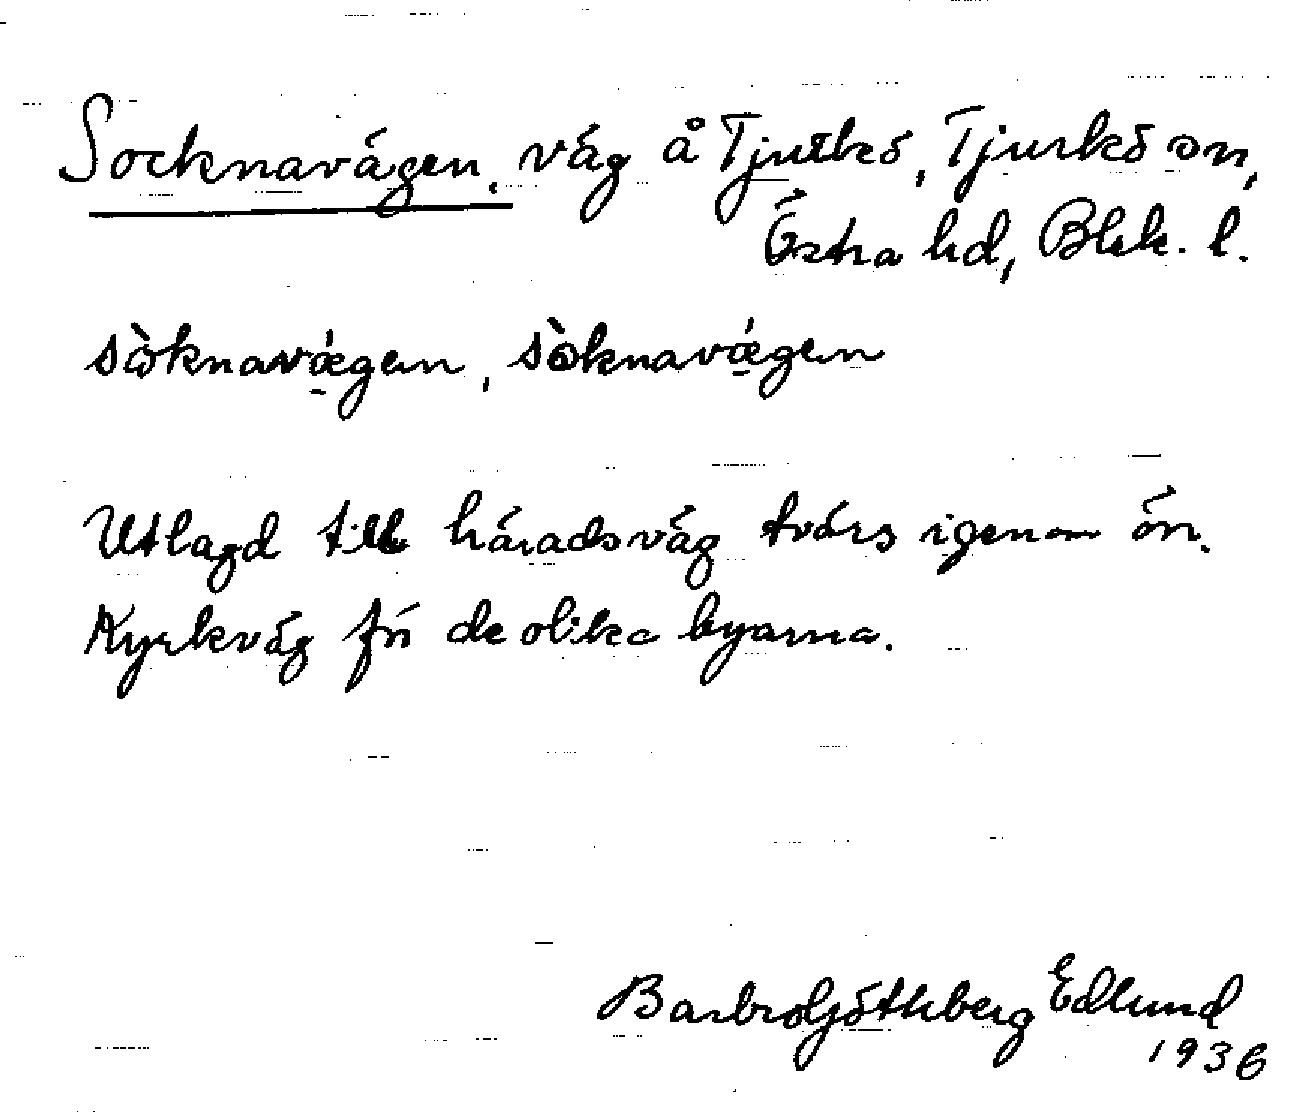 Socknavägen, väg å Tjurkö, Tjurkö sn,
Östra hd, Blek. l.
sòknavǽgen, sòknavǽgen
Utlagd till häradsväg tvärs igenom ön.
Kyrkväg fr de olika byarna.
Barbro Göthberg Edlund
1936